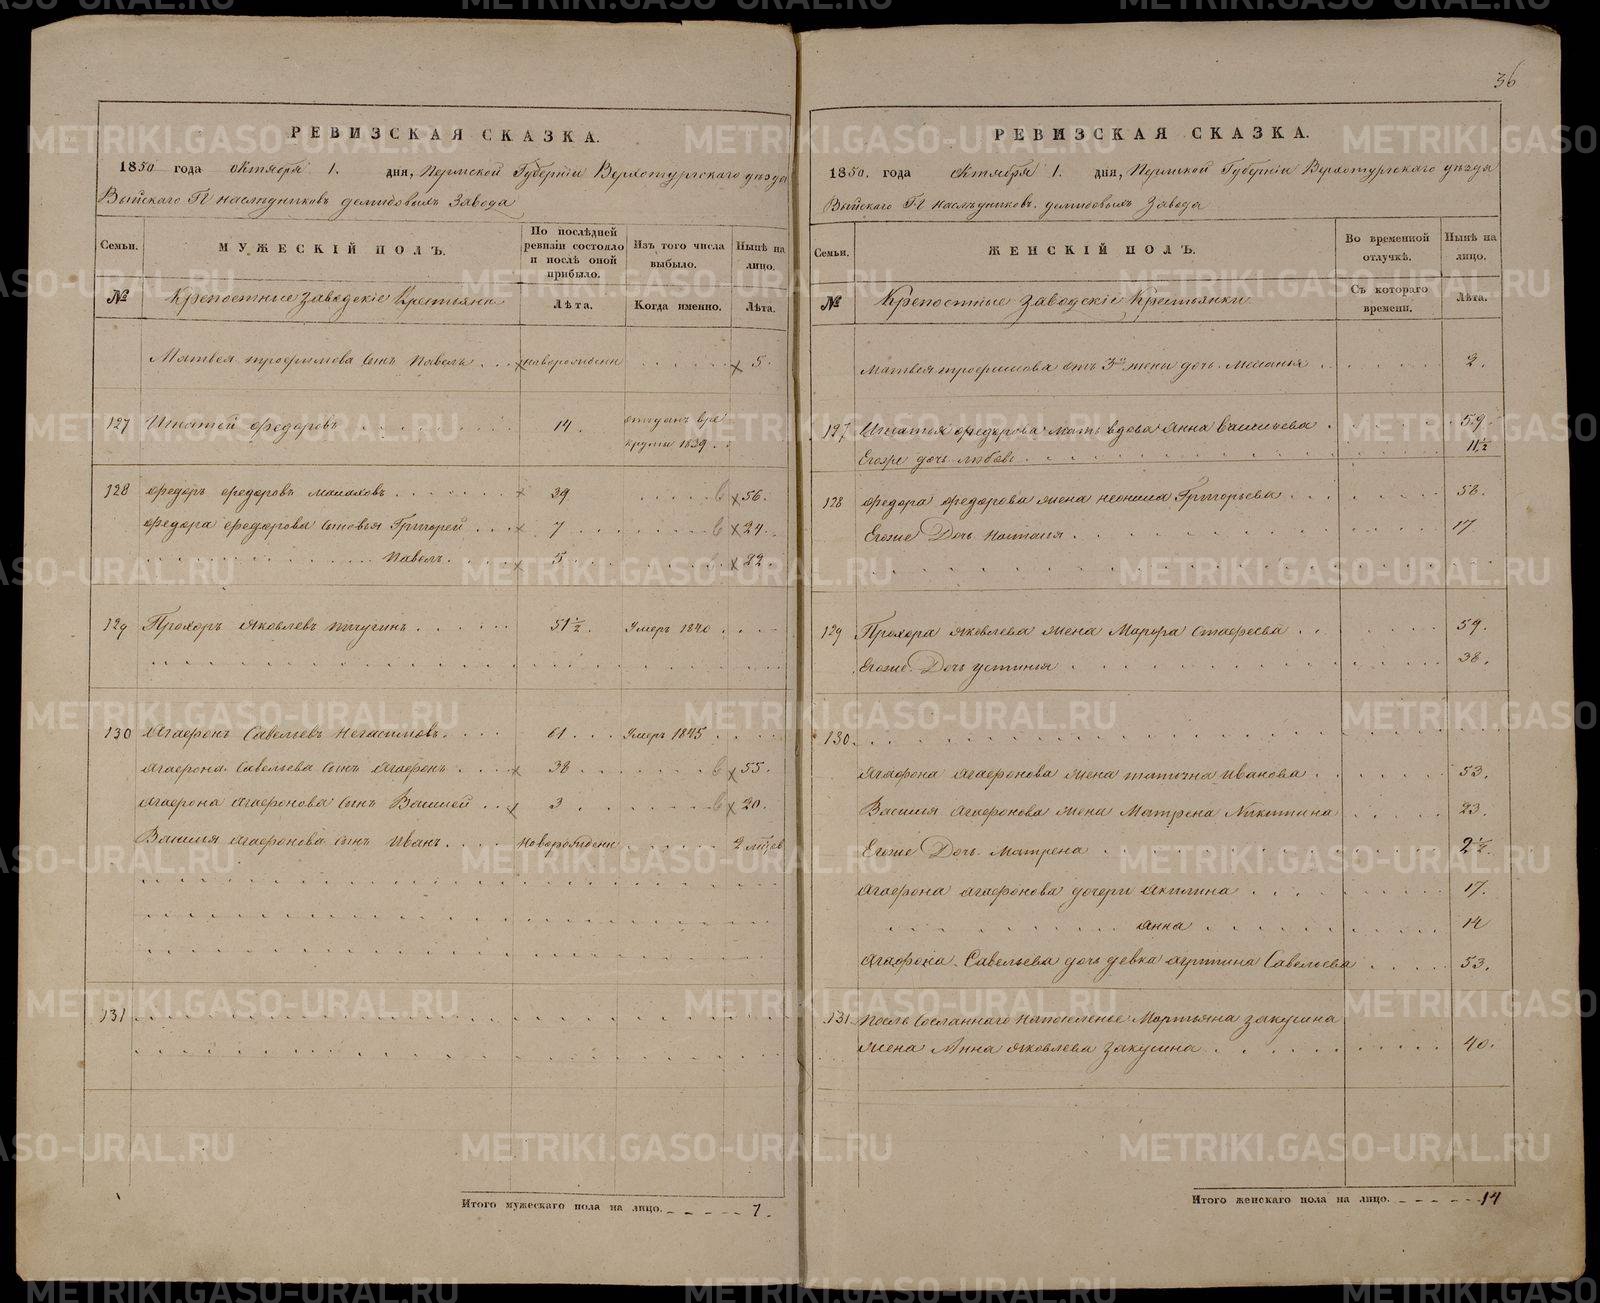 36
РЕВИЗСКАЯ СКАЗКА.
1850 года октября 1. дня, Пермской Губернiи Верхотурскаго уѣзда
Выйскаго ГГ наслѣдниковъ демидовыхъ Завода
Семьи.
МУЖЕСКIЙ ПОЛЪ.
По послѣдней ревизiи состояло и послѣ оной прибыло.
Изъ того числа выбыло.
Нынѣ на лицо.
№
Крепостные заводскiе Крестьяна
Лѣта.
Когда именно.
Лѣта.
Матвея трофимова сынъ Павелъ новорожденн 5.
127 Игнатей федоровъ 14. отданъ вре
круты 1839
128 федоръ федоровъ малаховъ 39 56.
федора федорова сыновья Григорей 7 24.
Павелъ 5 22
129 Прохоръ яковлевъ пичугинъ 51½. Умеръ 1840
130 Агафонъ Савельевъ Негасимовъ 61 Умеръ 1845
Агафона Савельева сынъ Агафонъ 38 55.
Агафона Агафонова сынъ Василей 3 20.
Василья Агафонова сынъ Иванъ новорожденн 2 мѣсяв
131
Итого мужескаго пола на лицо. 7.
РЕВИЗСКАЯ СКАЗКА.
1850. года октября 1. дня, Пермской Губернiи Верхотурскаго уѣзда
Выйскаго ГГ наслѣдниковъ. демидовыхъ Завода
Семьи.
ЖЕНСКIЙ ПОЛЪ.
Во временной отлучкѣ.
Нынѣ на лицо.
№
Крепостные Заводскiе Крестьянки
Съ котораго времени.
Лѣта.
Матвея трофимова отъ 3й жены дочь Меланья 2.
127 Игнатья федорова мать вдова Анна Васильева 59.
Егоже дочь любовь 11½
128 федора федорова жена неонила Григорьева 58.
Егоже Дочь наталья 17
129 Прохора яковлева жена Марфа Стафеева 59.
Егоже Дочь устинья 38.
130.
Агафона Агафонова жена татьяна иванова 53.
Василья Агафонова жена Матрена Никитина 23.
Егоже Дочь Матрена 2½.
Агафона агафонова дочери Акилина 17.
Анна 14
Агафона Савельева дочь девка Савельева 53.
131 После Сосланнаго напоселенье Мартьяна закусина
жена Анна яковлева закусина 40.
Итого женскаго пола на лицо. 14
METRIKI.GASO-URAL.RU